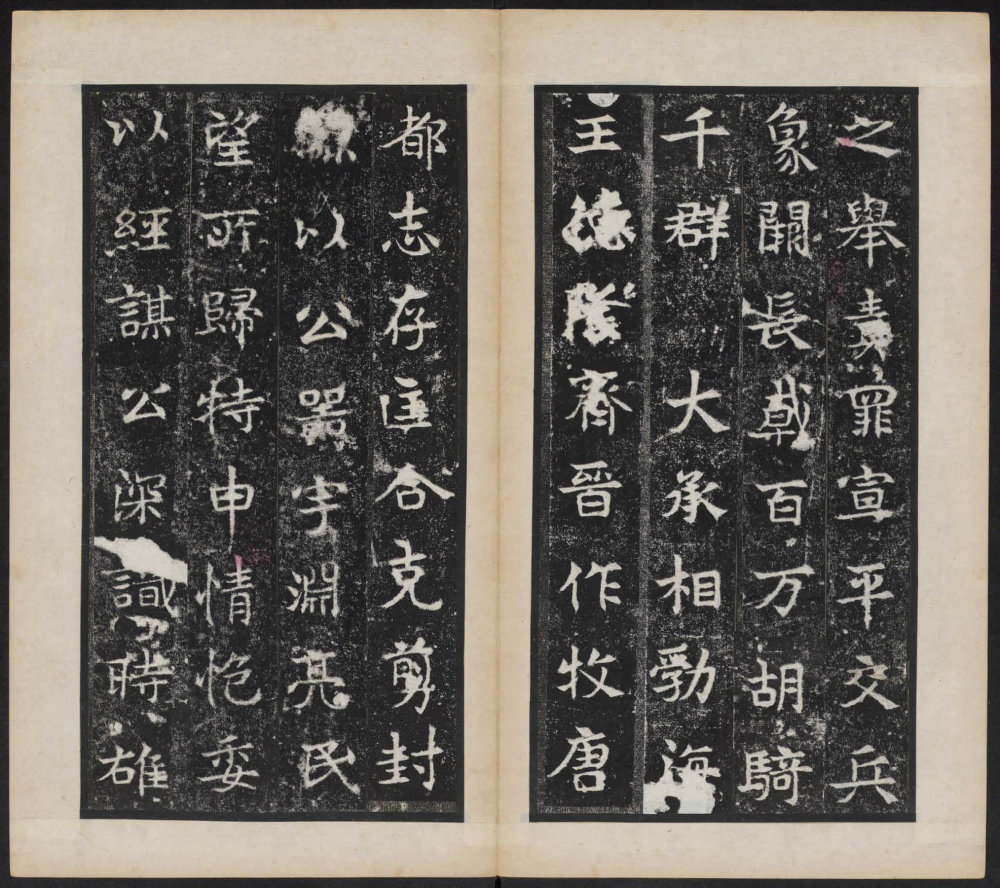 之舉責罪宣平交兵
象闕長戟百万胡騎
千群大承相勃海
王德隆齊晉作牧唐
都志存匡合克剪封
以公器宇淵亮民
望所歸特申情㧪委
以經謀公深識時雄